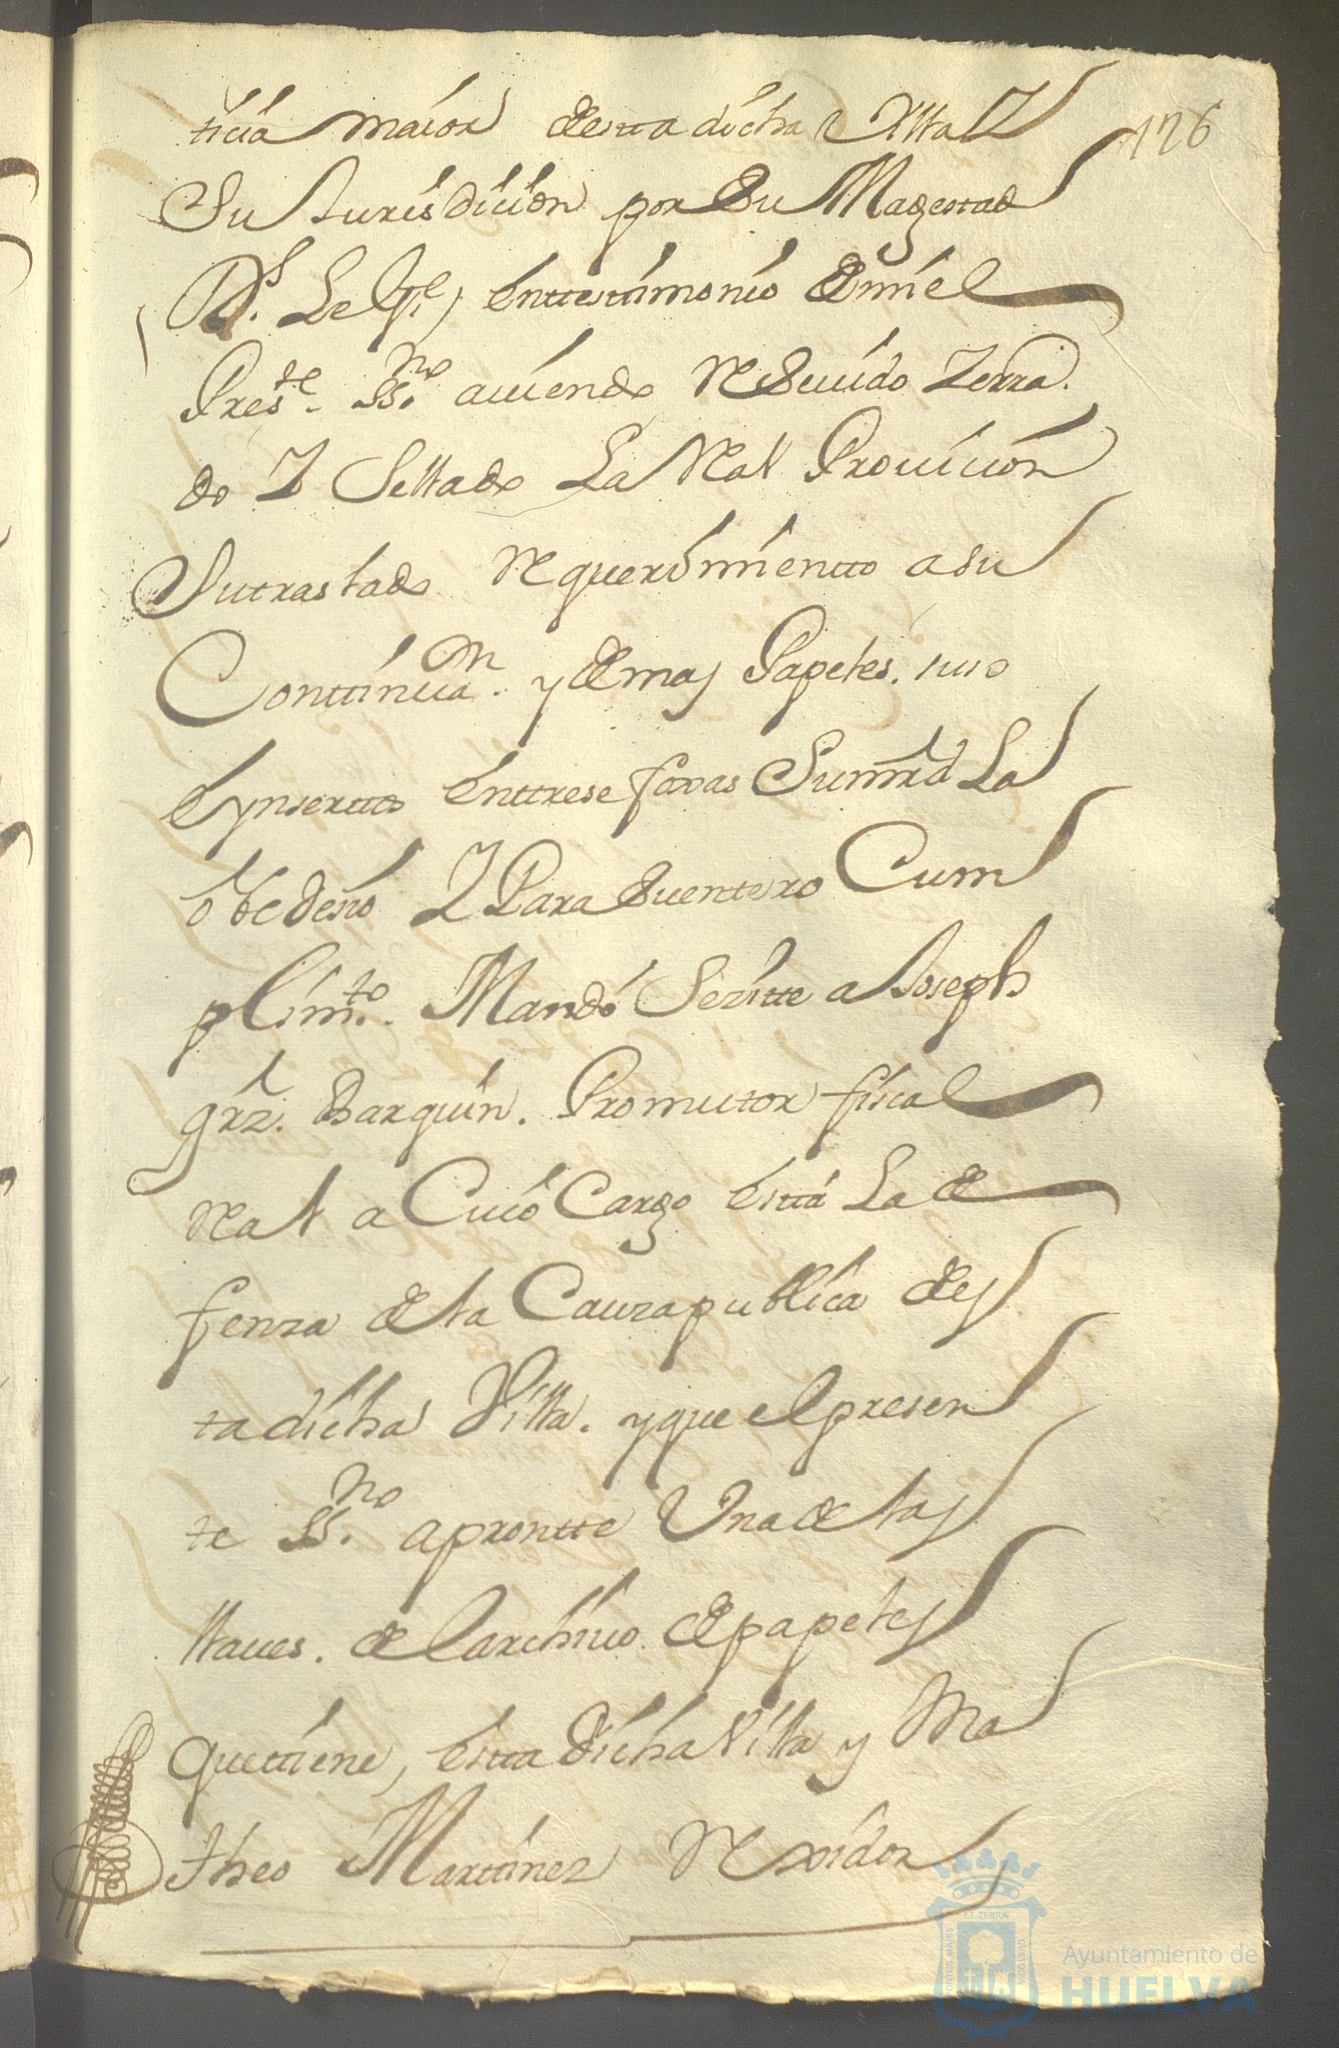 126
ticia maior desta dicha Villa Y
Su Jurisdicion por Su Magestad
Ds. Le Gde, enttestimonio de mi el
Preste. SSno. auiendo Reseuido Zerra.
do Y Sellado La Real Prouicion
Su traslado Requerimientto a su
Conttinuan. y demas Papeles. suso
Eynsertto enttrese fojas Su mrd La
obedesio Y Para Su entero Cum
plimto. Mandó Se zitte a Joseph
grz. Barquin. Promutor fiscal
Real a Cuio Cargo está La de
fensa de la Causa publica des
ta dicha Villa. y que el presen
te SSno. aprontte Una de las
llaues. del archiuo de papeles
que tiene, esta dicha Villa y Ma
theo Martinez Rexidor
Ayuntamiento de
HUELVA